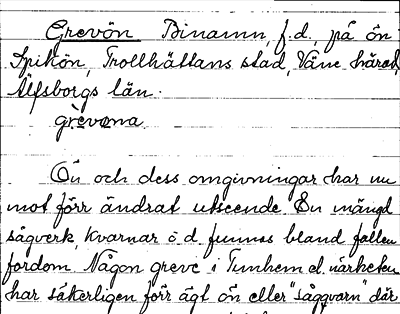 Grevön Binamn, f.d., på ön
Spikön, Trollhättans stad, Väne härad,
Älfsborgs län.
grèvona
Ön och dess omgivningar har nu
mot förr ändrat utseende. En mängd
sågverk, kvarnar o.d. funnos bland fallen
fordom. Någon greve i Tunhem el. närheten
har säkerligen förr ägt ön eller "såggvarn" där